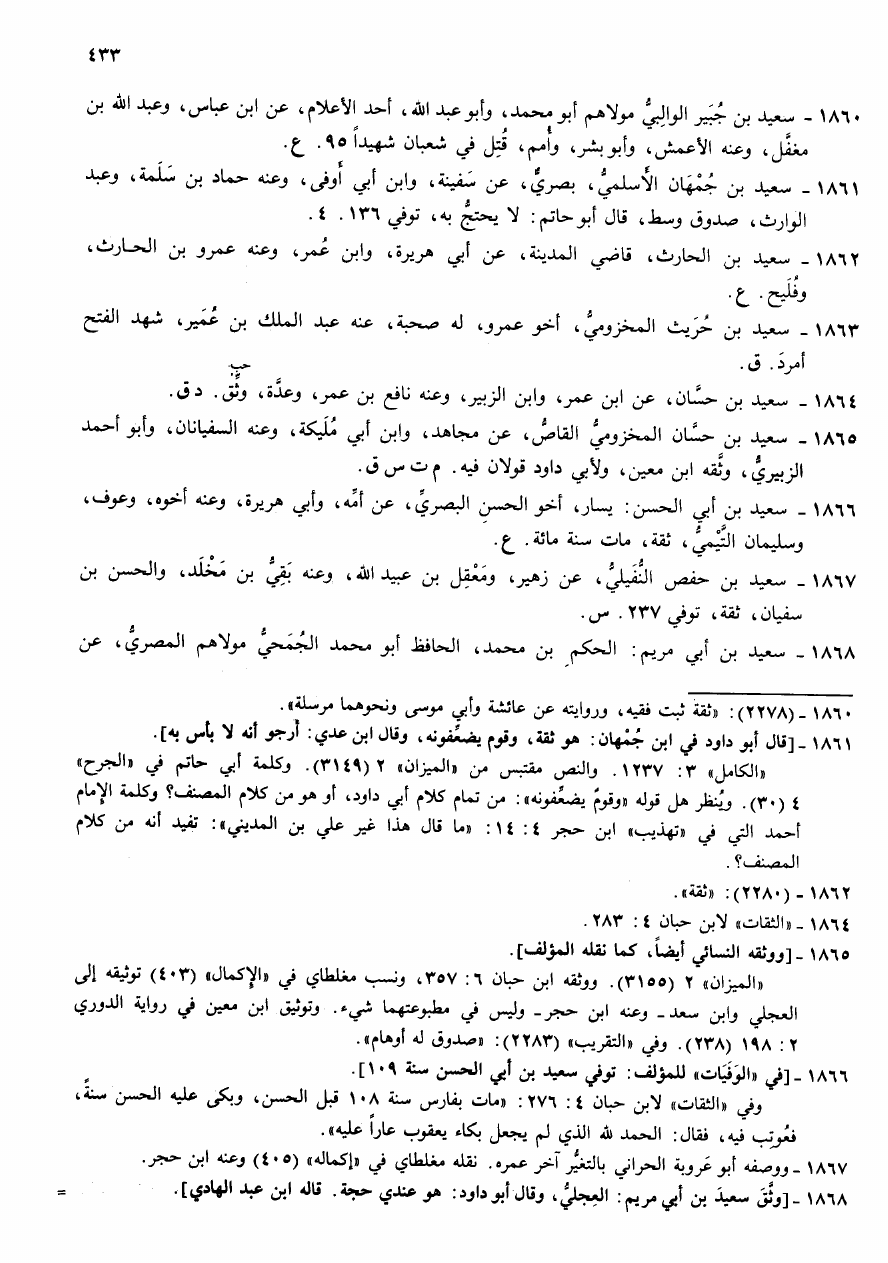 ٤٣٣
١٨٦٠ - سعيد بن جُبَير الوالِبيُّ مولاهم أبو محمد، وأبو عبد الله، أحد الأعلام، عن ابن عباس، وعبد الله بن
مغفَّل، وعنه الأعمش، وأبو بشر، وأُمم، قُتِل في شعبان شهيداً ٩٥. ع.
١٨٦١ - سعيد بن جُمْهَان الأسلميُّ، بصريٌّ، عن سَفينة، وابن أبي أَوفى، وعنه حماد بن سَلَمة، وعبد
الوارث، صدوق وسط، قال أبو حاتم: لا يحتجُّ به، توفي ١٣٦. ٤.
١٨٦٢ - سعيد بن الحارث، قاضي المدينة، عن أبي هريرة، وابن عُمر، وعنه عمرو بن الحارث،
وفُلَيح. ع.
١٨٦٣ - سعيد بن حُرَيث المخزوميُّ، أخو عمرو، له صحبة، عنه عبد الملك بن عُمَير، شهد الفتح
أمردَ. ق.
حب
١٨٦٤ - سعيد بن حسَّان، عن ابن عمر، وابن الزبير، وعنه نافع بن عمر، وعدَّة، وثِّق. د ق.
١٨٦٥ - سعيد بن حسَّان المخزوميُّ القاصُّ، عن مجاهد، وابن أبي مُلَيكة، وعنه السفيانان، وأبو أحمد
الزبيريُّ، وثَّقه ابن معين، ولأبي داود قولان فيه. م ت س ق.
١٨٦٦ - سعيد بن أبي الحسن: يسار، أخو الحسنِ البصريِّ، عن أمِّه، وأبي هريرة، وعنه أخوه، وعوف،
وسليمان التَّيْميُّ، ثقة، مات سنة مائة. ع.
١٨٦٧ - سعيد بن حفص النُّفَيليُّ، عن زهير، ومَعْقِل بن عبيد الله، وعنه بَقِيُّ بن مَخْلَد، والحسن بن
سفيان، ثقة، توفي ٢٣٧. س.
١٨٦٨ - سعيد بن أبي مريم: الحكمِ بن محمد، الحافظ أبو محمد الجُمَحيُّ مولاهم المصريُّ، عن
١٨٦٠ - (٢٢٧٨): «ثقة ثبت فقيه، وروايته عن عائشة وأبي موسى ونحوهما مرسلة».
١٨٦١ - [قال أبو داود في ابن جُمْهان: هو ثقة، وقوم يضعِّفونه، وقال ابن عدي: أرجو أنه لا بأس به].
«الكامل» ٣: ١٢٣٧. والنص مقتبس من «الميزان» ٢ (٣١٤٩). وكلمة أبي حاتم في «الجرح»
٤ (٣٠). ويُنظر هل قوله «وقومٌ يضعِّفونه»: من تمام كلام أبي داود، أو هو من كلام المصنف؟ وكلمة الإمام
أحمد التي في «تهذيب» ابن حجر ٤: ١٤: «ما قال هذا غير علي بن المديني»: تفيد أنه من كلام
المصنف؟.
١٨٦٢ - (٢٢٨٠): «ثقة».
١٨٦٤ - «الثقات» لابن حبان ٤: ٢٨٣.
١٨٦٥ - [ووثقه النسائي أيضاً، كما نقله المؤلف].
«الميزان» ٢ (٣١٥٥). ووثقه ابن حبان ٦: ٣٥٧، ونسب مغلطاي في «الإكمال» (٤٠٣) توثيقه إلى
العجلي وابن سعد - وعنه ابن حجر - وليس في مطبوعتهما شيء. وتوثيق ابن معين في رواية الدوري
٢: ١٩٨ (٢٣٨). وفي «التقريب» (٢٢٨٣): «صدوق له أوهام».
١٨٦٦ - [في «الوَفَيَات» للمؤلف: توفي سعيد بن أبي الحسن سنة ١٠٩].
وفي «الثقات» لابن حبان ٤: ٢٧٦: «مات بفارس سنة ١٠٨ قبل الحسن، وبكى عليه الحسن سنةً،
فعُوتِب فيه، فقال: الحمد لله الذي لم يجعل بكاء يعقوب عاراً عليه».
١٨٦٧ - ووصفه أبو عَروبة الحراني بالتغيُّر آخر عمره. نقله مغلطاي في «إكماله» (٤٠٥) وعنه ابن حجر.
١٨٦٨ - [وثَّقَ سعيدَ بن أبي مريم: العِجليُّ، وقال أبو داود: هو عندي حجة. قاله ابن عبد الهادي]. =